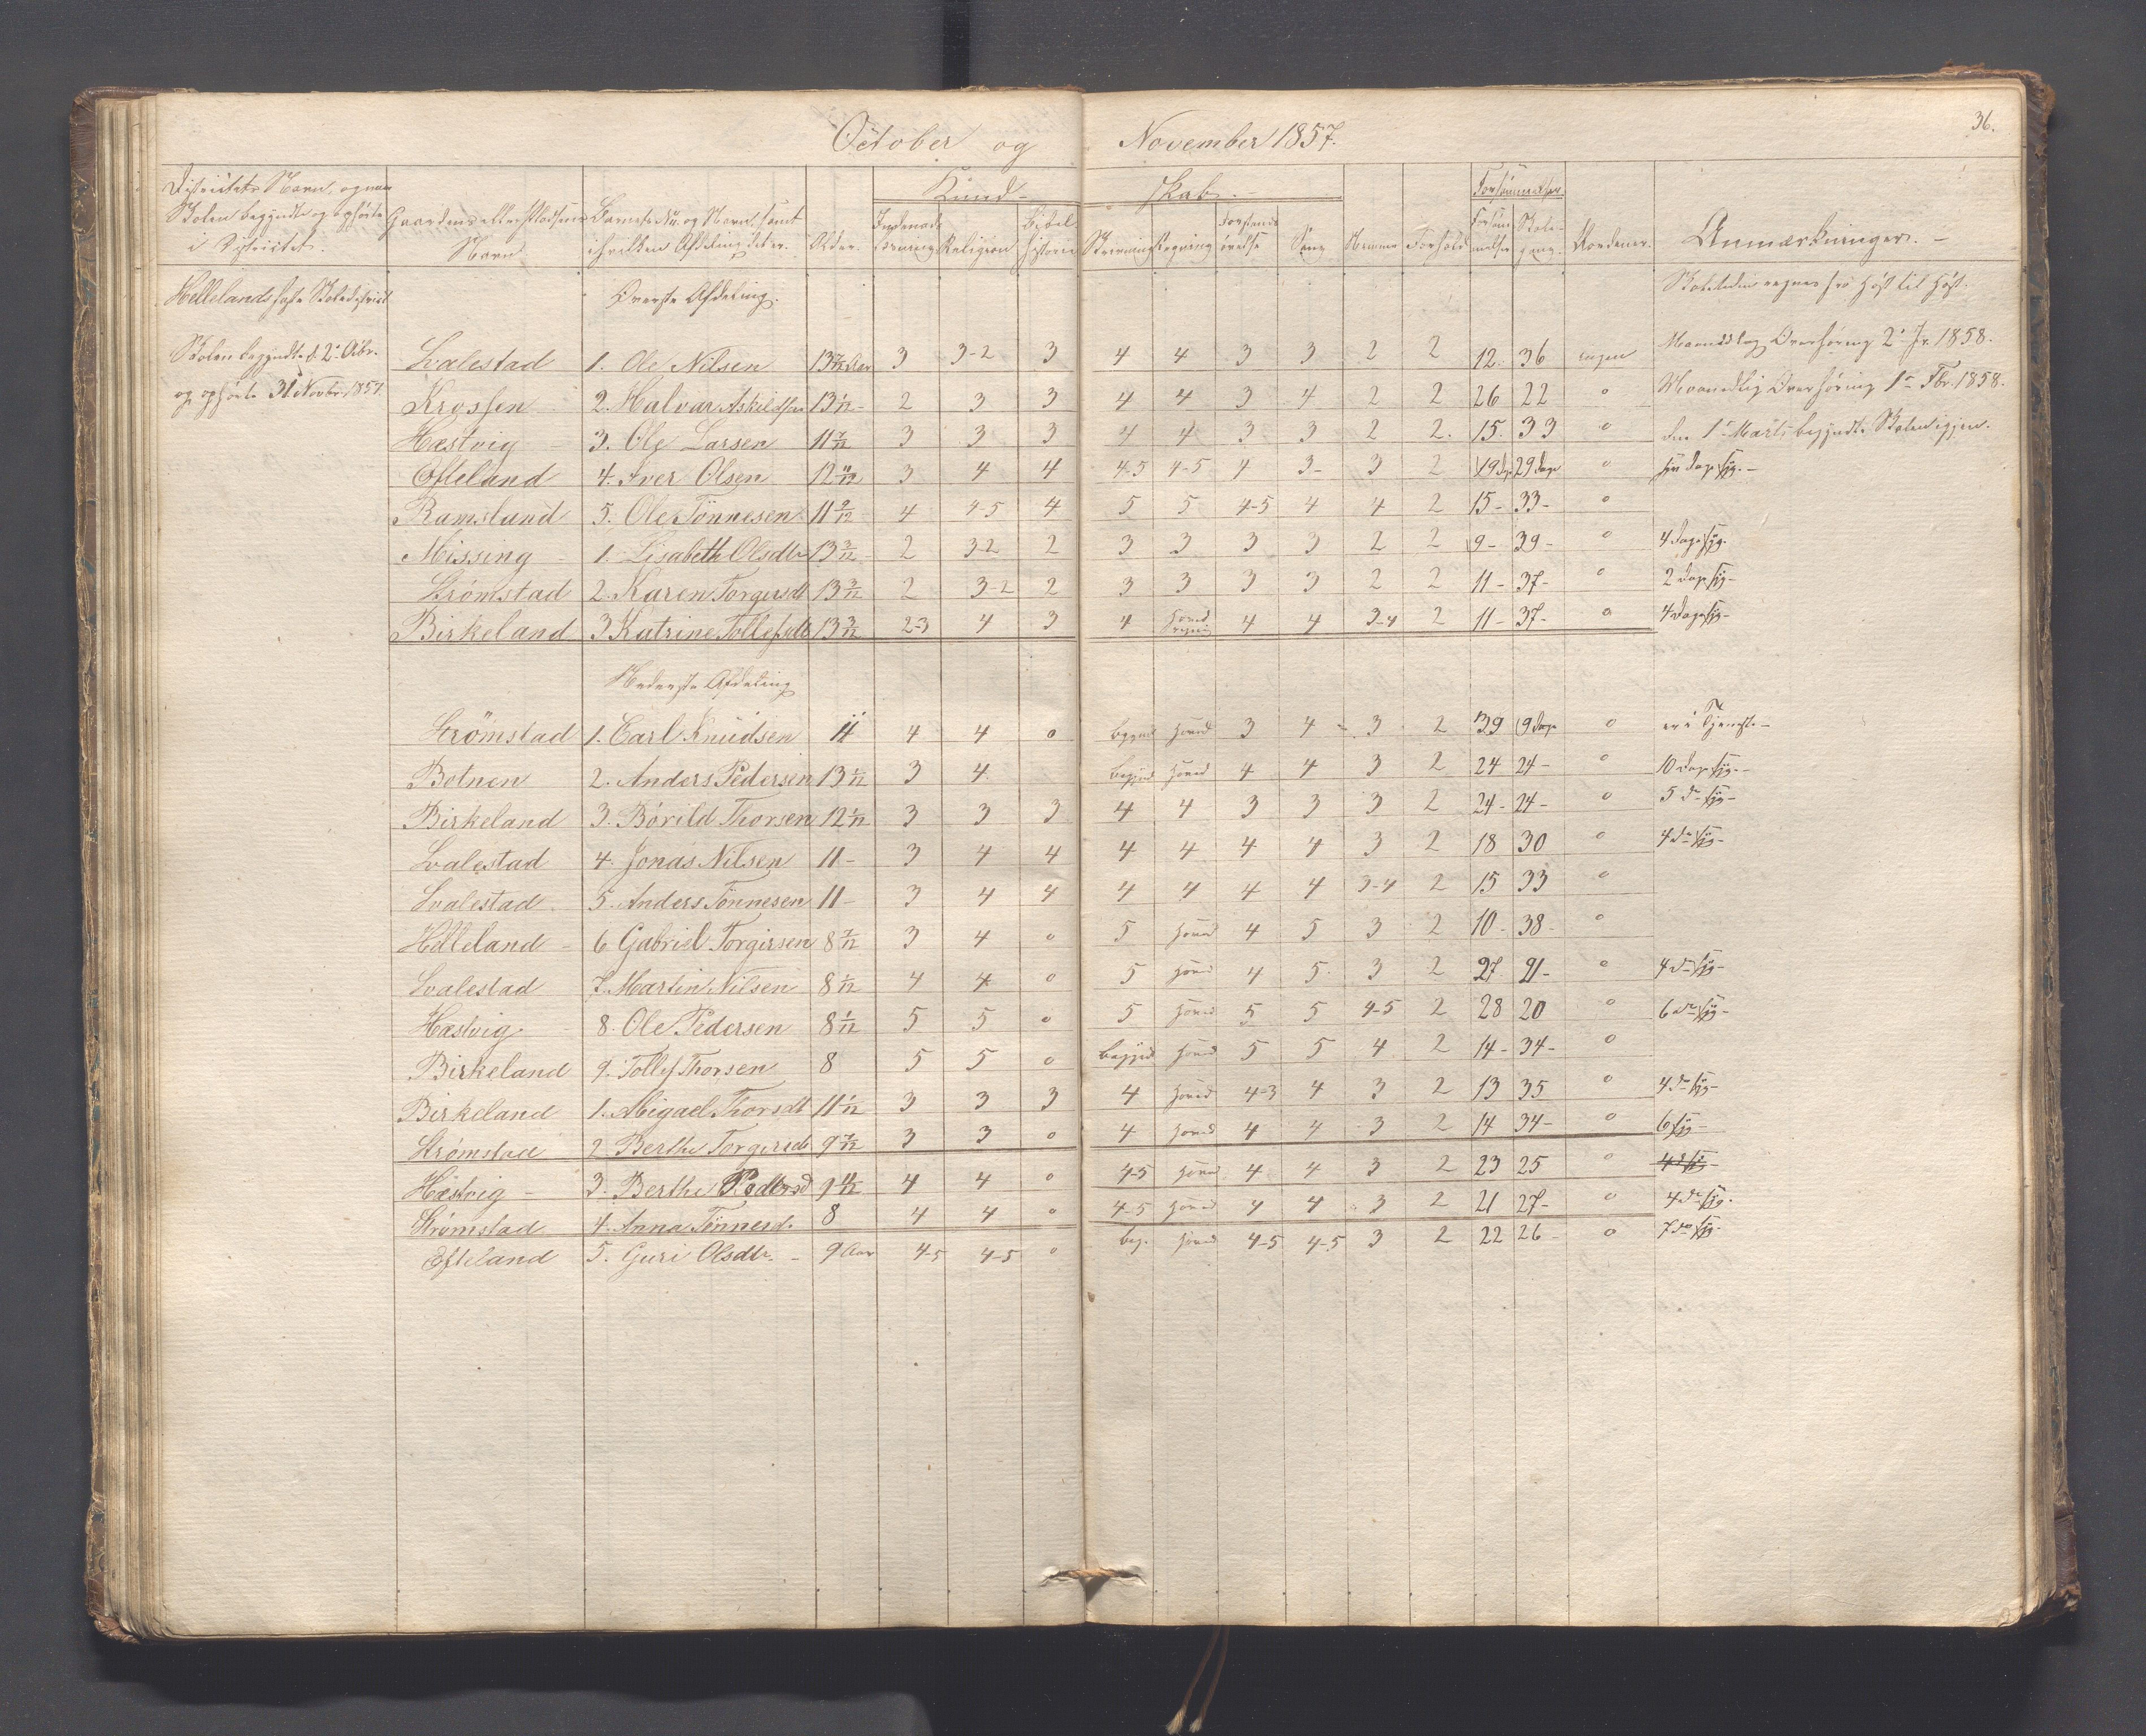 36.
October og November 1857.
Districtets Navn, og naar Skolen begyndte og ophørte i Districtet.
Gaardens eller Pladsens Navn
Barnets Nu. og Navn, samt i hvilken Afdeling det er.
Alder.
Kund- skab.
Indenads Læsning
Religion
Bibel historie
Skrivning
Regning
Forstands øvelse
Sang
Nemme
Forhold
Forsømmelser.
Forsøm melse
Skole- gang.
Anmærkninger.
Hellelands faste Skoledistrict
Øverste Afdeling.
Skoletiden regnes fra Høst til Høst.
Skolen begyndte d. 2. Octbr.
og ophørte 31 Novbr. 1857.
Svalestad 1. Ole Nilsen 13 7/12 Aar 3 3-2 3 4 4 3 3 2 2 12. 36 ingen Maanedslag Overhøring 2. Jr. 1858.
Krossen 2. Halvar Askeldsen 13 1/12 2 3 3 4 4 3 4 2 2 26 22 0 Maanedlig Overhøring 1ste Fbr. 1858.
Hæstvig 3. Ole Larsen 11 7/12 3 3 3 4 4 3 3 2 2. 15. 33 0 den 1ste Marts begyndte Skolen igjen.
Efteland 4. Iver Olsen 12 10/12 3 4 4 4-5 4-5 4 3- 3 2 19 dg 29 dage 0 dage syg.-
Ramsland 5. Ole Tönnesen 11 9/12 4 4-5 4 5 5 4-5 4 4 2 15- 33- 0
Missing 1. Lisabeth Olsdtr 13 3/12 2 3-2 2 3 3 3 3 2 2 9- 39- 0 4 dage syg.
Strømstad 2. Karen Torgersdt 13 3/12 2 3-2 2 3 3 3 3 2 2 11- 37- 0 2 dage syg-
Birkeland 3 Katrine Tollefsdt 13 3/12 2-3 4 3 4 hoved regning 4 4 3-4 2 11- 37- 0 4 dage syg-
Nederste Afdeling
Strömstad 1. Carl Knudsen 11 4 4 0 begynd hoved 3 4 3 2 39 9 dage 0 er i Tjeneste-
Botnen 2. Anders Pedersen 13 1/12 3 4 begynd hoved 4 4 3 2 24 24- 0 10 dage syg.-
Birkeland 3. Börild Thorsen 12 1/12 3 3 3 4 4 3 3 3 2 24- 24- 0 5 do syg-
Svalestad 4. Jonas Nilsen 11- 3 4 4 4 4 4 4 3 2 18 30 0 4 do syg-
Svalestad 5. Anders Tönnesen 11- 3 4 4 4 4 4 4 3-4 2 15 33 0
Helleland 6 Gabriel Torgersen 8 7/12 3 4 0 5 hoved 4 5 3 2 10- 38- 0
Svalestad 7. Martin Nilsen 8 1/12 4 4 0 5 hoved 4 5 3 2 27. 21- 0 4 do syg-
Hæstvig 8. Ole Pedersen 8 1/12 5 5 0 5 hoved 5 5 4-5 2 28 20 0 6 do syg-
Birkeland 9. Tollef Thorsen 8 5 5 0 begynd hoved 5 5 4 2 14- 34- 0
Birkeland 1. Abigael Thorsdt 11 1/12 3 3 3 4 hoved 4-3 4 3 2 13 35 0 4 do syg-
Strømstad 2 Berthe Torgersdt 9 7/12 3 3 0 4 hoved 4 4 3 2 14 34- 0 6 syg-
Hæstvig 3. Berthe Pedersd 9 11/12 4 4 0 4-5 hoved 4 4 3 2 23 25 0 4 d syg-
Strømstad 4. Anna Tönnesd. 8 4 4 0 4-5 hoved 4 4 3 2 21 27- 0 4 do syg.
Efteland 5. Guri Olsdtr. 9 Aar 4-5 4-5 0 beg. hoved 4-5 4-5 3 2 22 26- 0 7 do syg.